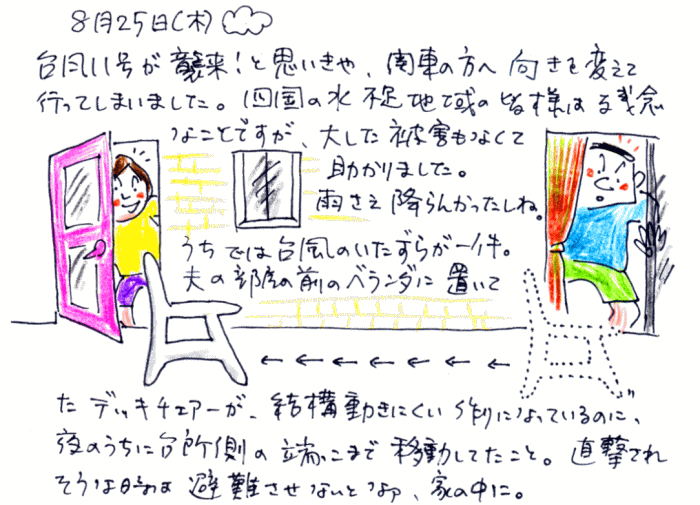 8月25日(木)
台風11号が襲来!と思いきや、関東の方へ向きを変えて
行ってしまいました。四国の水不足地域の皆様は残念
なことですが、大した被害もなくて
助かりました。
雨さえ降らんかったしね。
うちでは台風のいたずらが一件。
夫の部屋の前のベランダに置いて
たデッキチェアーが、結構動きにくい作りになっているのに、
夜のうちに台所側の端っこまで移動してたこと。直撃され
そうな時は避難させないとなァ、家の中に。